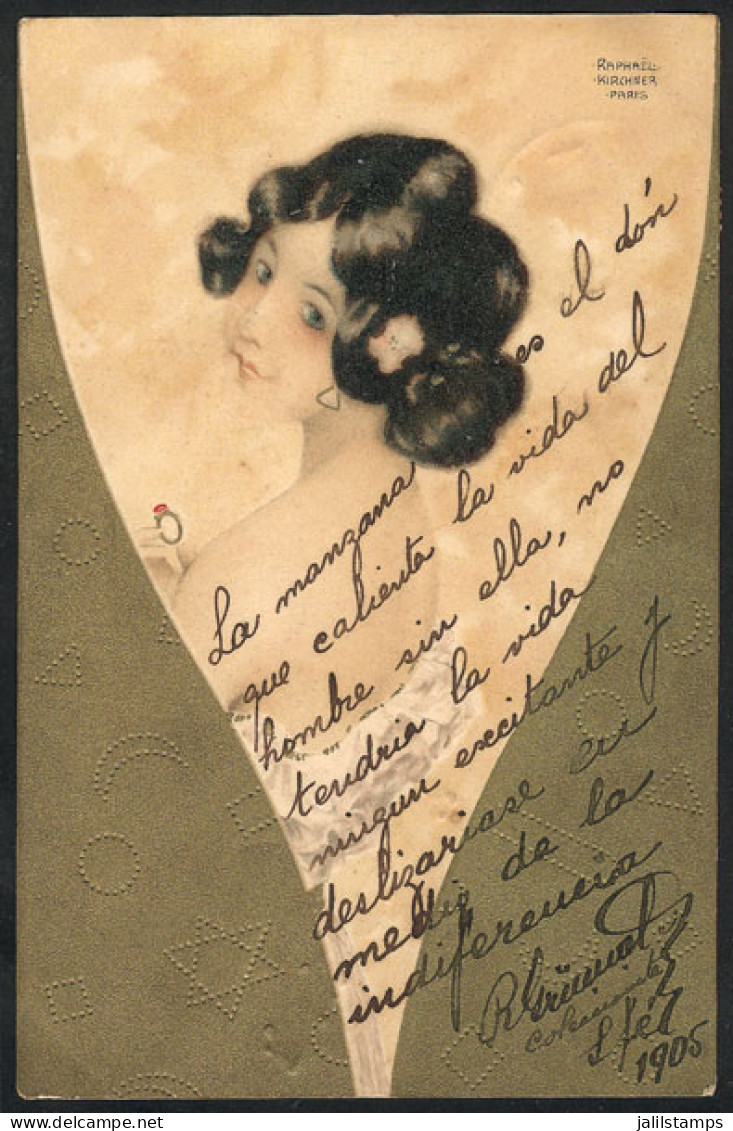 RAPHAËL
KIRCHNER
PARIS
La manzana es el dón
que calienta la vida del
hombre sin ella, no
tendria la vida
ningun excitante y
deslizariase en
medio de la
indiferencia
S. Fé
1905
jalilstamps